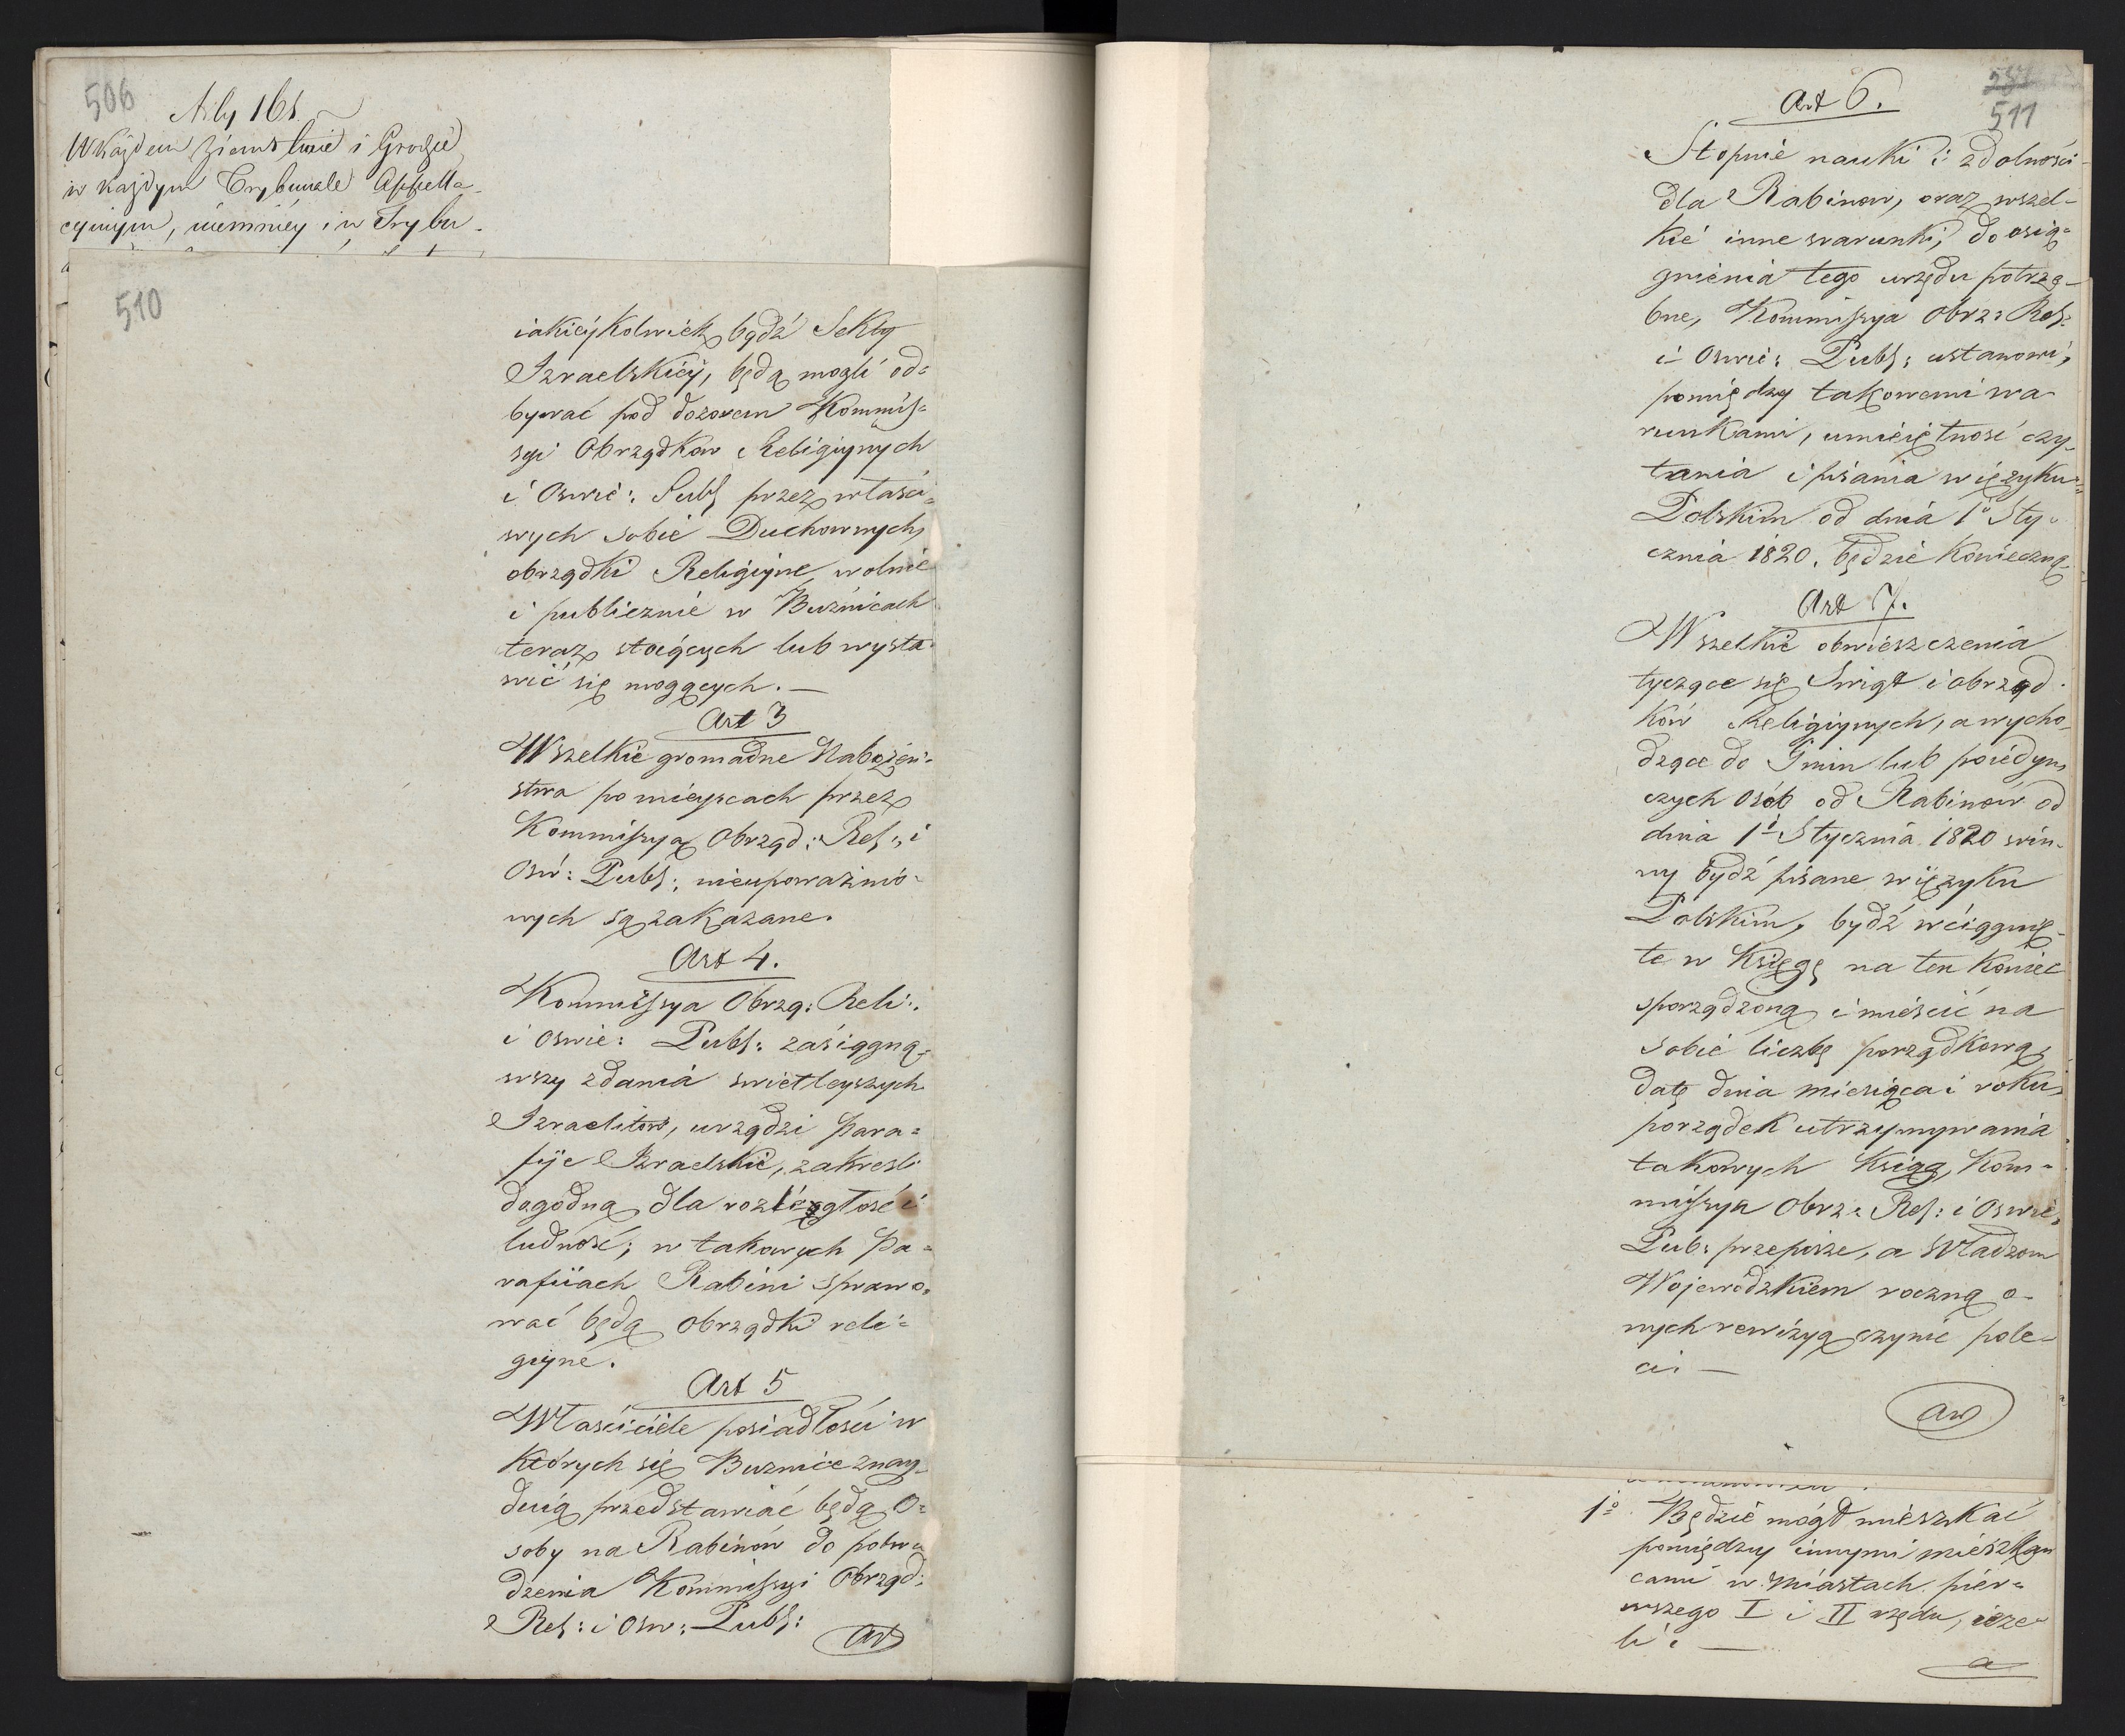 506
Arty 161.
W każdem Ziemstwie i Grodzie
w każdym Trybunale Appella-
cyjnym, niemniéy i w Trybu-
510
iakieykolwiek bądź Sekty
Izraelskiéy, będą mogli od=
bywać pod dozorem Kommis=
syi Obrządkow Religiynych
i Oswie: Publ przez właści=
wych sobie Duchownych,
obrządki Religiyne, wolnie
i publicznie w Buźnicach
teraz stoiących lub wysta
wić się mogących. —
Art 3
Wszelkie gromadne Nabożeń=
stwa po mieyscach przez
Kommissyą Obrząd: Rel: i
Osw: Publ: nieupoważnio-
nych są zakazane.
Art 4.
Kommissya Obrzą: Reli:
i Oswie: Publ: zasiągną-
wszy zdania swietleyszych
Izraelitow, urządzi para=
fije Izraelskie, zakreśli
dogodną dla rozległość i
ludność; w takowych Pa=
rafiiach Rabini sprawo=
wać będą obrządki reli=
giyne.
Art 5
Właściciele posiadłości w
których się Buznice znay-
duią przedstawiać będą O=
soby na Rabinów do potwier
dzenia Kommissyi Obrząd:
Rel: i Osw: Publ:
Art
511
Art 6.
Stopnie nauki i zdolności
dla Rabinow, oraz wszel-
kie inne warunki, do osią=
gnienia tego urzędu potrze-
bne, Kommissya Obrz: Rel:
i Oswie: Publ: ustanowi,
pomiędzy takowemi wa
runkami, umieiętność czy-
tania i pisania w ięzyku
Polskim od dnia 1º Sty=
cznia 1820. będzie konieczną.
Art 7.
Wszelkie obwieszczenia
tyczące się Swiąt i obrząd
ków Religiynych, a wycho-
dzące do Gmin lub poiedyn
czych osób od Rabinow od
dnia 1º Stycznia 1820 win-
ny bydź pisane w ięzyku
Polskim, bydź wciągnię-
te w Księgę na ten koniec
sporządzoną i mieścić na
sobie liczbę porządkową,
datę dnia miesiąca i roku,
porządek utrzymywania
takowych Ksiąg, Kom=
missya Obrz: Rel: i Oswie:
Pub: przepisze, a Władzom
Wojewódzkiem roczną o-
nych rewizyą czynić pole-
ci. —
Art
1º Będzie mógł mieszkać
pomiędzy innymi mieszkań
cami w miastach pier=
wszego I i II rzędu, ieże=
li: —
a